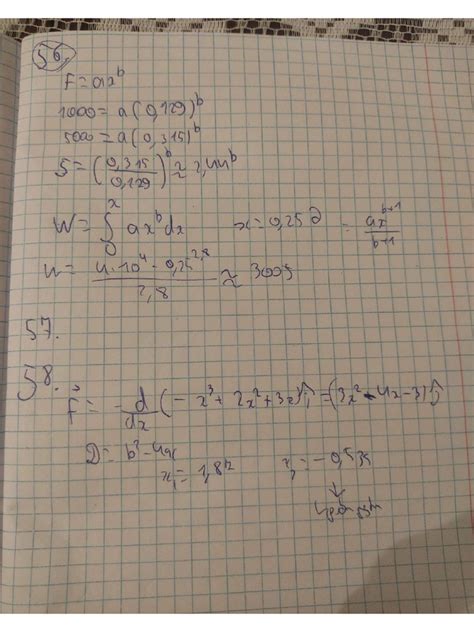 56.
F = ax^b
1000 = a(0,129)^b
5000 = a(0,315)^b
5 = (0,315/0,129)^b ≈ 2,44^b
W = ∫₀ˣ ax^b dx x = 0,25 = ax^(b+1)/(b+1)
W = 4·10⁴·0,25^2,8/2,8 ≈ 300
57.
58.
F = -d/dx(-x³+2x²+3x)î = (3x²-4x-3)î
D = b²-4ac
x₁ = 1,8 x₂ = -0,535